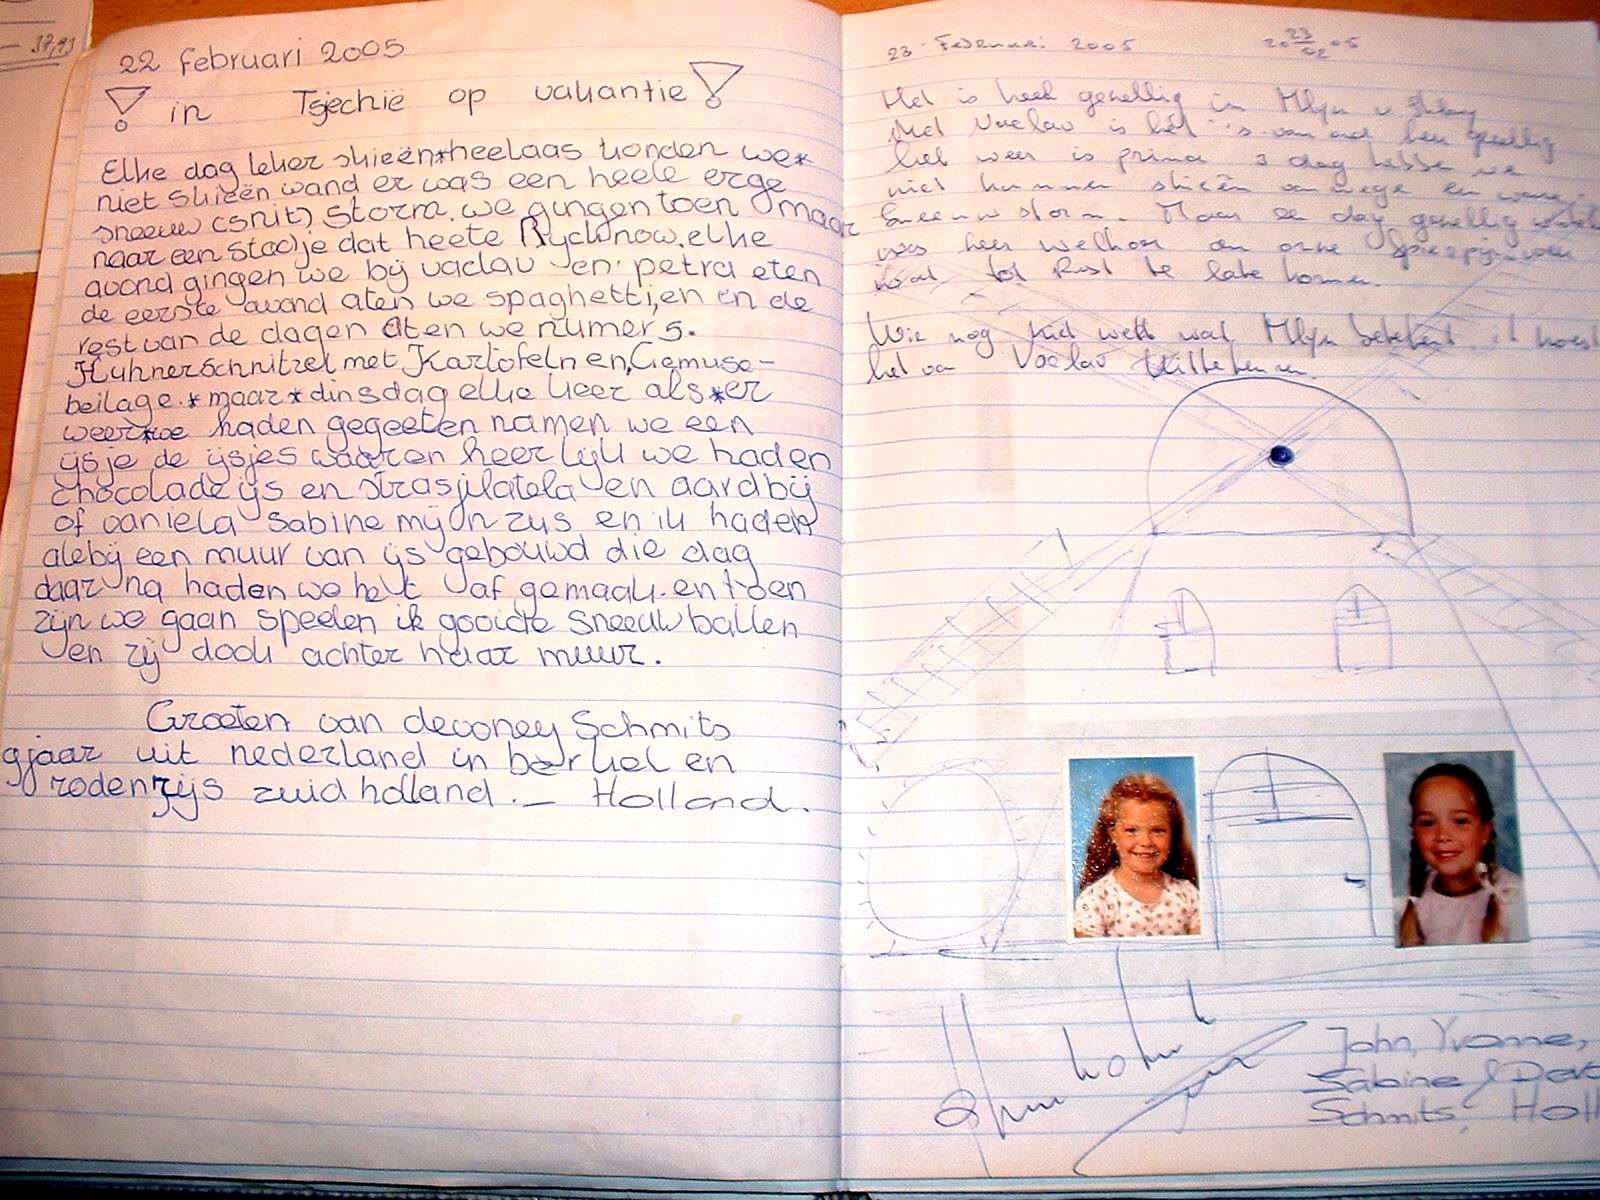 37,93
22 februari 2005
! in Tsjechië op vakantie !
Elke dag leker skieën*heelaas konden we*
niet skieën wand er was een heele erge
sneeuw (snit) storm. we gingen toen maar
naar een stadje dat heete Rychnow. elke
avond gingen we bij vaclav en petra eten
de eerste avond aten we spaghetti, en in de
rest van de dagen aten we numer 5.
Huhnerschnitzel met Kartofeln en Gemuse-
beilage. *maar* dinsdag elke keer als *er
weer toe haden gegeeten namen we een
ijsje de ijsjes waaren heerlijk we haden
chocolade ijs en strasjilatela en aardbij
of vaniela sabine mijn zus en ik haden
alebij een muur van ijs gebouwd die dag
daar na haden we het af gemaak. en toen
zijn we gaan speelen ik gooide sneeuwballen
en zij dook achter haar muur.
Groeten van devoney Schmits
9jaar uit nederland in berkel en
rodenrijs zuid holland. — Holland.
23 Februari 2005
20 23/02 05
Het is heel gezellig in Mlyn v
Met Vaclav is het 's-avonds heel gezellig
het weer is prima 1 dag hebben we
niet kunnen skieën vanwege een
sneeuwstorm. Maar een dag gezellig
was heer welkom om onze
tot Rust te late komen.
Wie nog niet weet wat Mlyn betekent, ik moest
het van Vaclav
John, Yvonne,
Sabine & Dev
Schmits, Holl